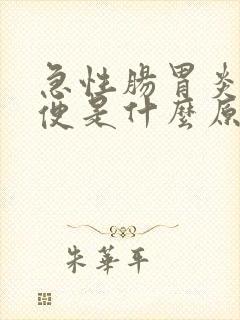 急性腸胃炎
便是什麼原
朱華平